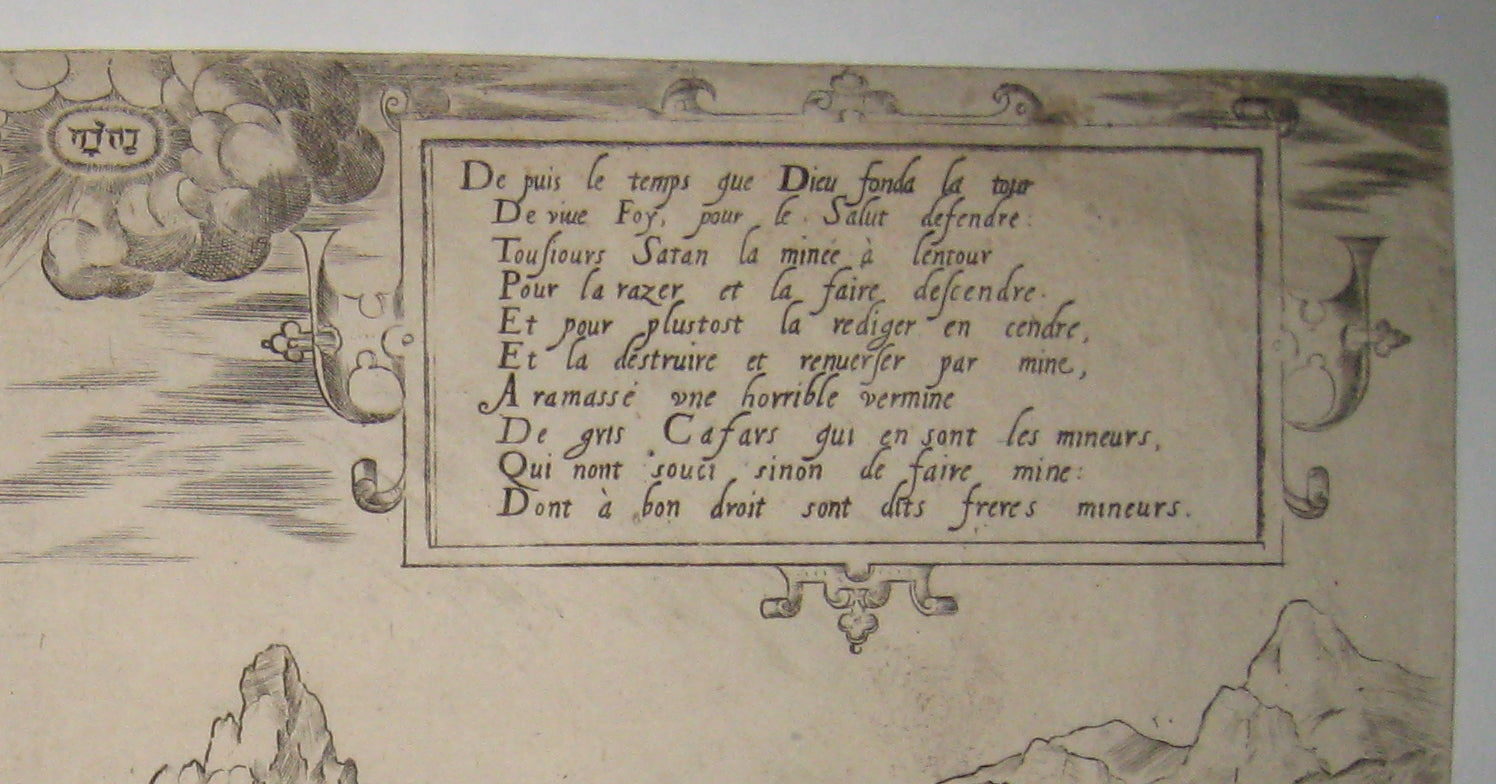 יהוה
De puis le temps que Dieu fonda la tour
De viue Foy, pour le Salut defendre:
Tousiours Satan la minée à lentour
Pour la razer et la faire descendre.
Et pour plustost la rediger en cendre,
Et la destruire et renuerser par mine,
A ramassé vne horrible vermine
De gris Cafars qui en sont les mineurs,
Qui nont souci sinon de faire mine:
Dont à bon droit sont dits freres mineurs.